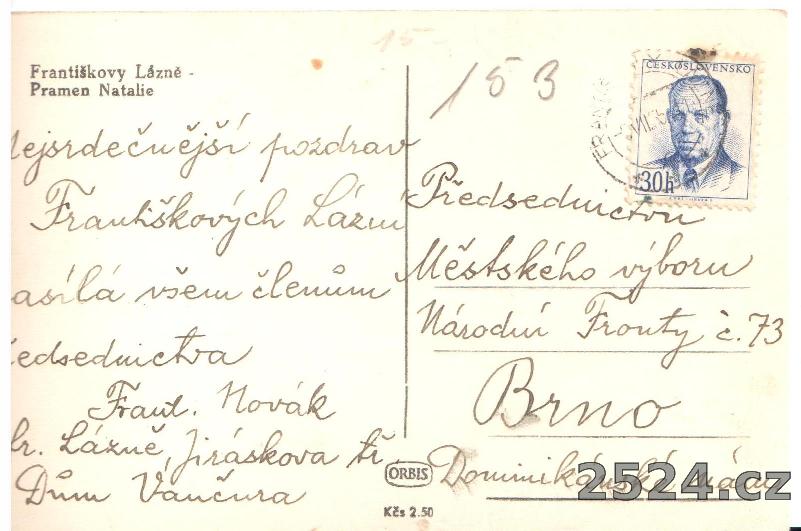 Františkovy Lázně -
Pramen Natalie
ejsrdečnější pozdrav
Františkových Lázní
asílá všem členům
edsednictva
Frant. Novák
r. Lázně, Jiráskova tř.
Dům Vančura
15-
153
ČESKOSLOVENSKO
30h
Předsednictvu
Městského výboru
Národní Fronty č. 73
Brno
Dominikánské nám
ORBIS
Kčs 2.50
2524.cz